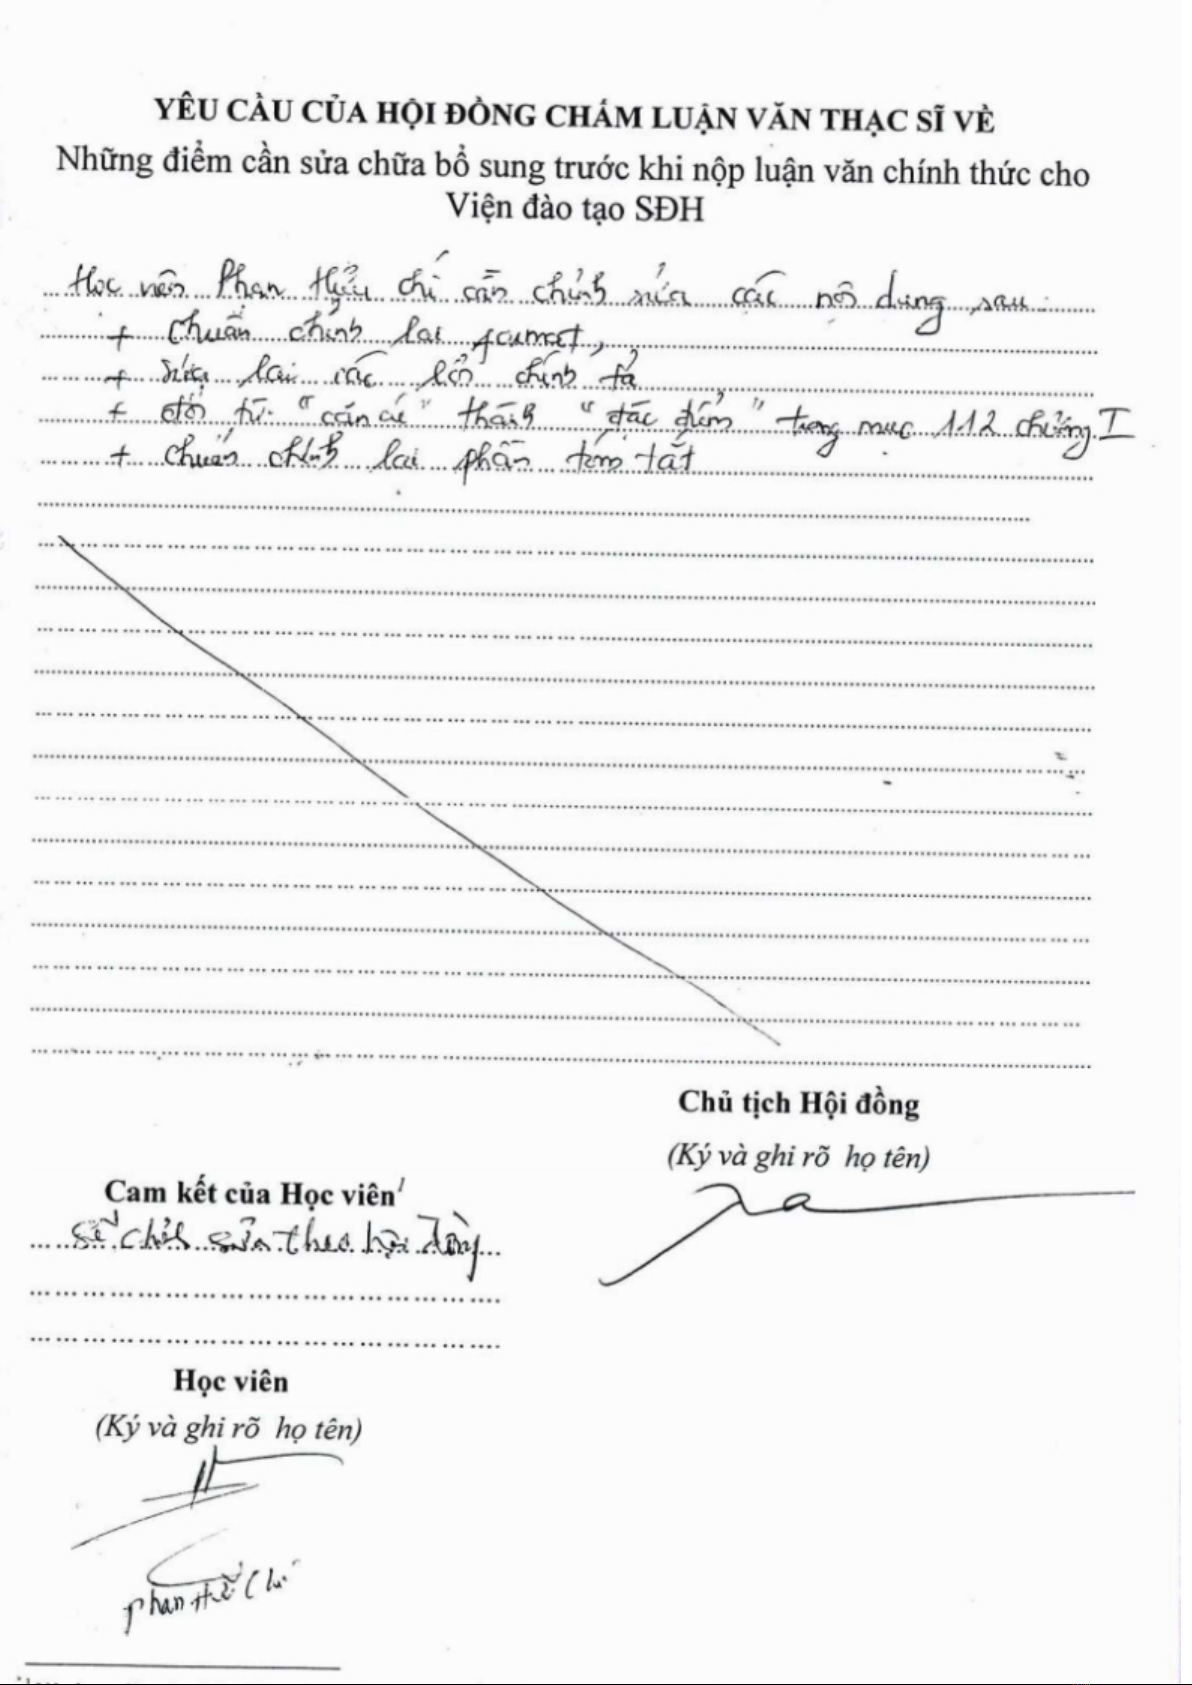 YÊU CẦU CỦA HỘI ĐỒNG CHẤM LUẬN VĂN THẠC SĨ VỀ
Những điểm cần sửa chữa bổ sung trước khi nộp luận văn chính thức cho
Viện đào tạo SĐH
Học viên Phan Hữu Chí cần chỉnh sửa các nội dung sau:
+ Chuẩn chỉnh lại format,
+ sửa lại các lỗi chính tả
+ đổi từ "căn cứ" thành "đặc điểm" trong mục 1.1.2 chương I
+ chuẩn chỉnh lại phần tóm tắt
Chủ tịch Hội đồng
(Ký và ghi rõ họ tên)
Cam kết của Học viên¹
Sẽ chỉnh sửa theo hội đồng
Học viên
(Ký và ghi rõ họ tên)
Phan Hữu Chí